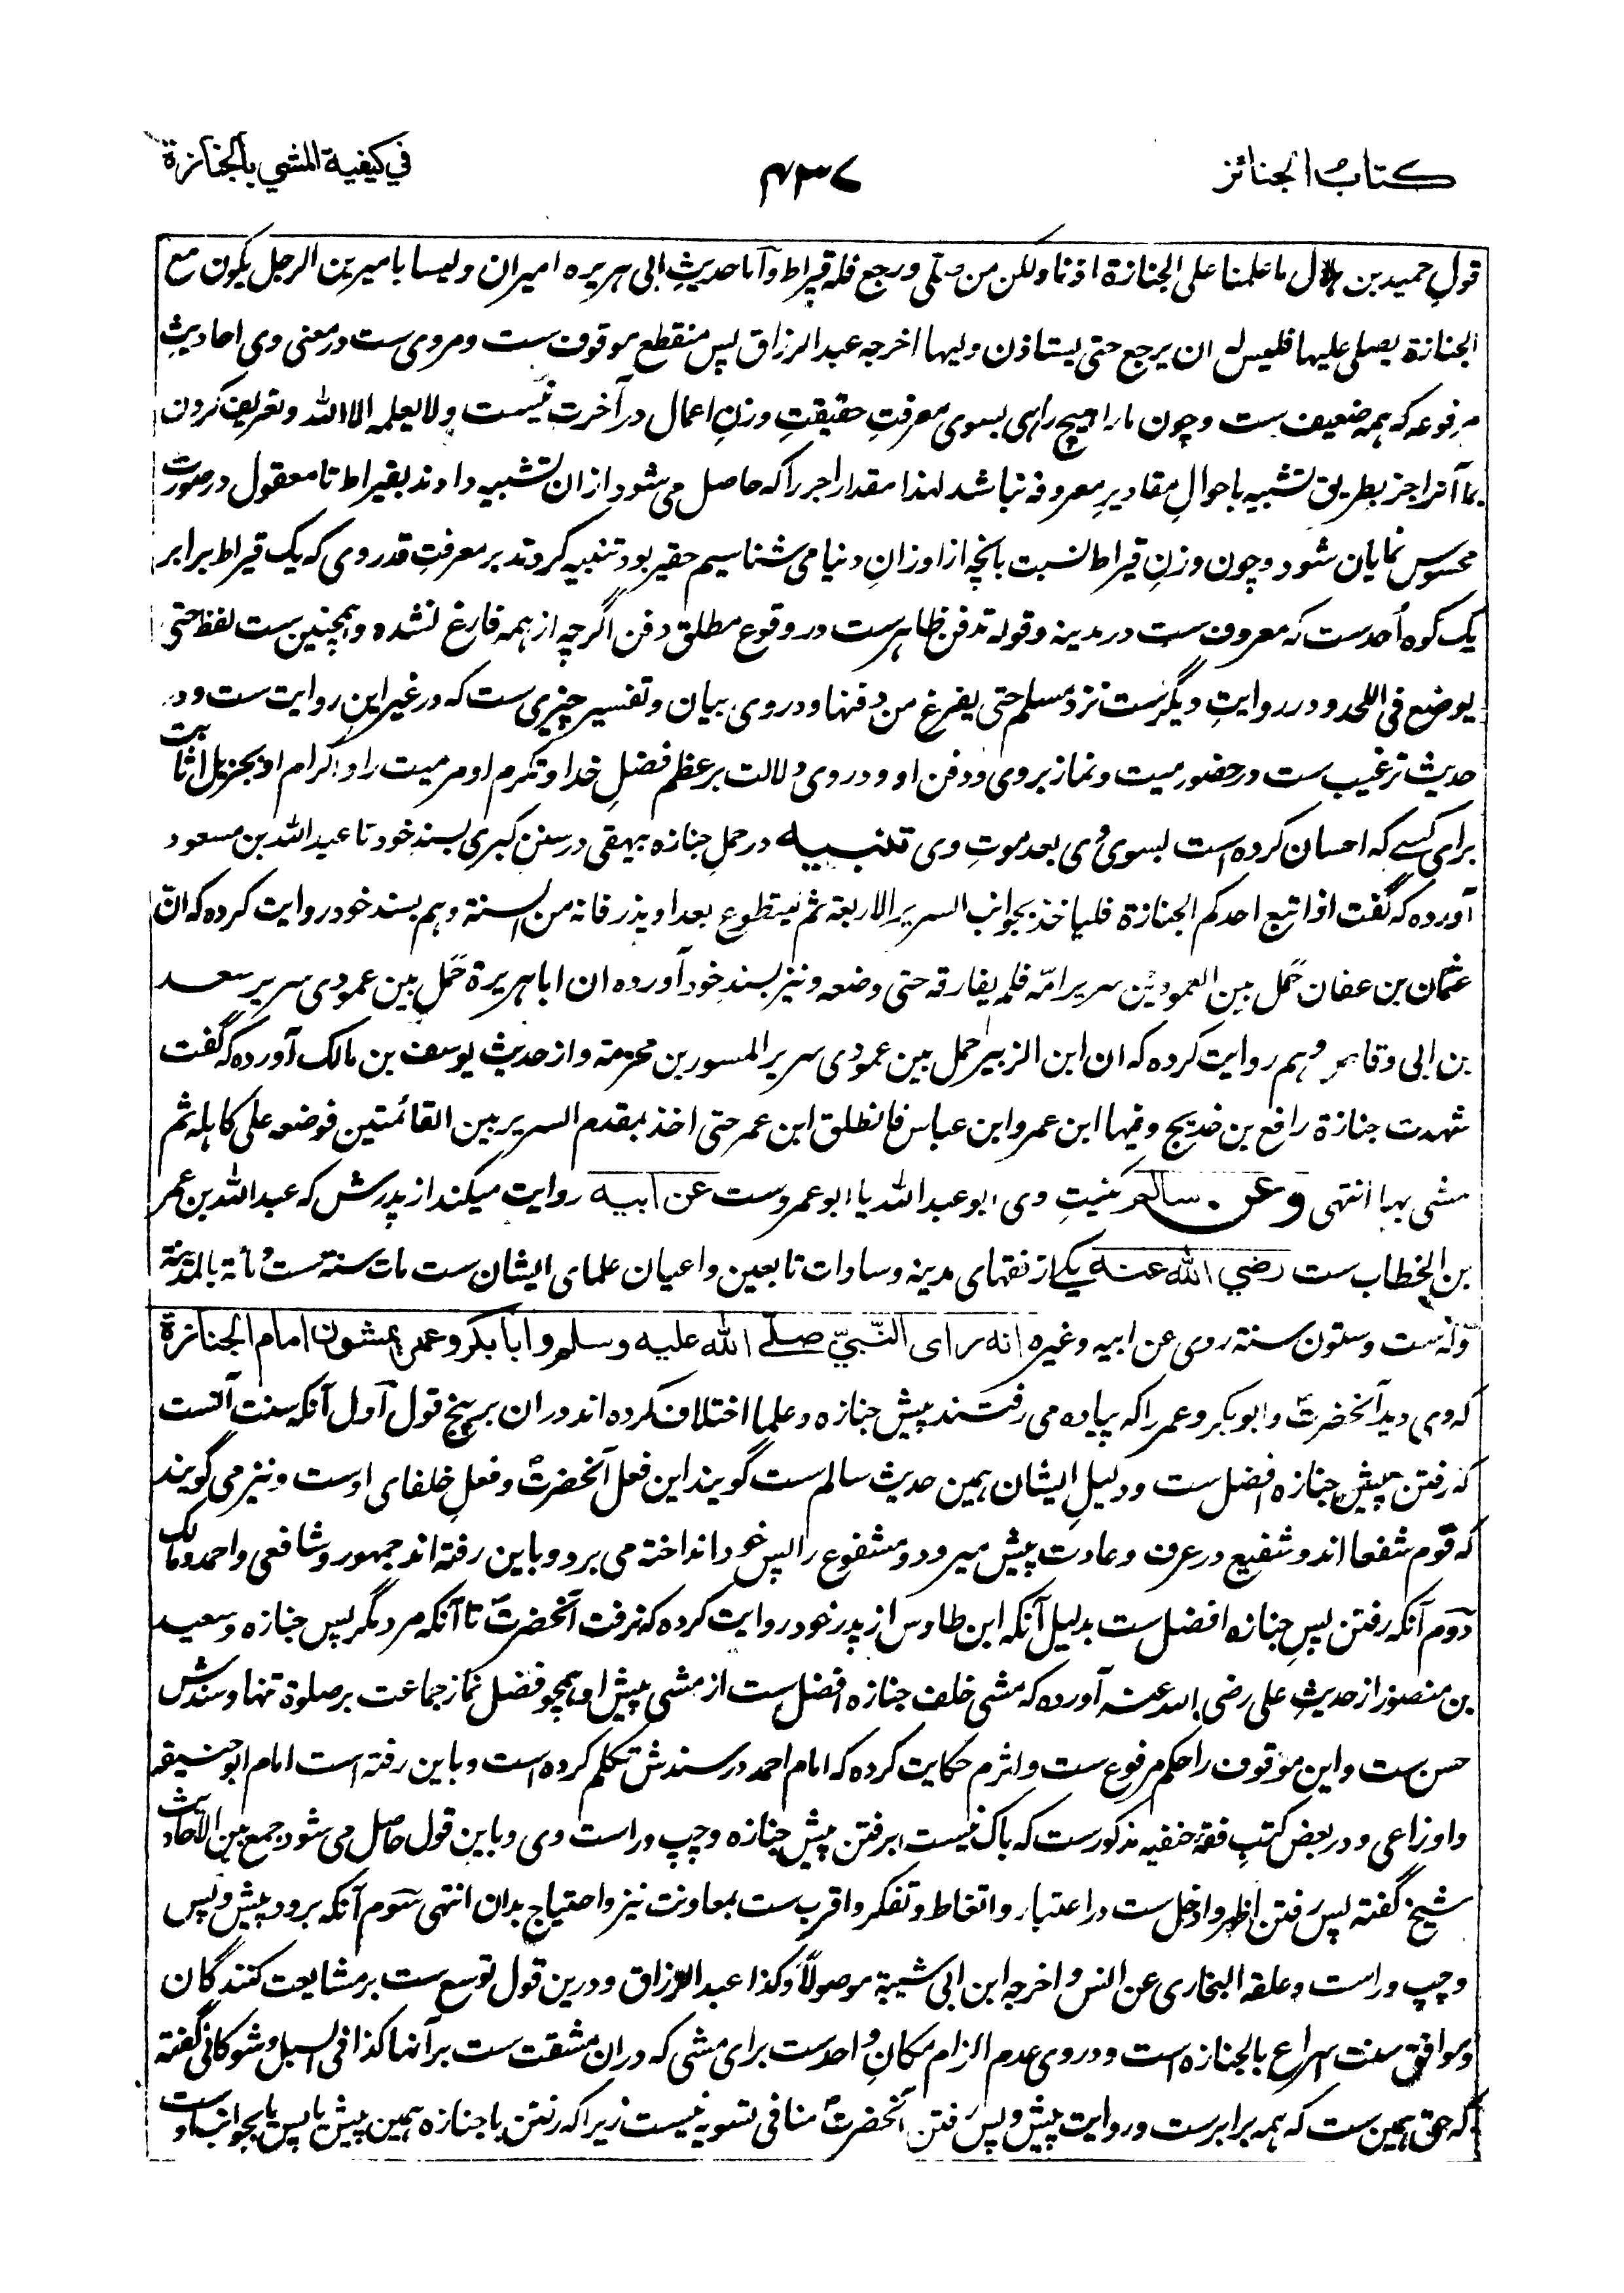 كتاب الجنائز
۴۳۷
في كيفية المشي بالجنازة
قولِ حمید بن ہلال ما علمنا علی الجنازة اذنا ولکن من صلی ورجع فلہ قیراط وآما حدیثِ ابی ہریرہ امیران ولیسا بامیرین الرجل یکون مع
الجنازة یصلی علیہا فلیس لہ ان یرجع حتی یستاذن ولیہا اخرجہ عبد الرزاق پس منقطع موقوف ست ومروی ست در معنی وی احادیثِ
مرفوعہ کہ ہمہ ضعیف ست وچون ما را ہیچ راہی بسوی معرفتِ حقیقتِ وزنِ اعمال در آخرت نیست ولا یعلمہ الا اللہ وتعریف کردن
بما آنرا جز بطریق تشبیہ باحوالِ مقادیرِ معروفہ نباشد لہذا مقدار اجر را کہ حاصل می شود ازان تشبیہ دادند بقیراط تا معقول در صورت
محسوس نمایان شود وچون وزنِ قیراط نسبت بانچہ از اوزانِ دنیا می شناسیم حقیر بود تنبیہ کردند بر معرفتِ قدر وی کہ یک قیراط برابر
یک کوہ اُحد ست کہ معروف ست در مدینہ وقولہ تدفن ظاہر ست در وقوع مطلق دفن اگرچہ از ہمہ فارغ نشدہ وہمچنین ست لفظ حتی
یوضع فی اللحد ودر روایتِ دیگر ست نزد مسلم حتی یفرغ من دفنہا ودر وی بیان وتفسیر چیزی ست کہ در غیر این روایت ست ودر
حدیث ترغیب ست در حضور میت ونماز بر وی ودفن او ودر وی دلالت بر عظم فضلِ خدا وتکرم او مر میت را واکرام او بجزیل اثابت
برای کسے کہ احسان کردہ است بسوی وی بعد موتِ وی تنبیہ در حملِ جنازہ بیہقی در سنن کبری بسند خود تا عبد اللہ بن مسعود
آوردہ کہ گفت اذا تبع احدکم الجنازة فلیاخذ بجوانب السریر الاربعہ ثم لیتطوع بعد او یذر فانہ من السنة وہم بسند خود روایت کردہ کہ انّ
عثمان بن عفان حَمل بین العمودین سریر امّہ فلم یفارقہ حتی وضعہ ونیز بسند خود آوردہ ان ابا ہریرة حَمل بین عمودی سریر سعد
بن ابی وقاص وہم روایت کردہ کہ ان ابن الزبیر حمل بین عمودی سریر المسور بن مخرمة واز حدیث یوسف بن مالک آوردہ کہ گفت
شہدت جنازة رافع بن خدیج وفیہا ابن عمر وابن عباس فانطلق ابن عمر حتی اخذ بمقدم السریر بین القائمتین فوضعہ علی کاہلہ ثم
مشی بہا انتہی وعن سالم کنیتِ وی ابو عبد اللہ یا ابو عمرو ست عن ابیہ روایت میکند از پدرش کہ عبد اللہ بن عمر
بن الخطاب ست رضي الله عنه یکے از فقہای مدینہ وسادات تابعین واعیان علمای ایشان ست مات سنة ست ومائة بالمدینة
ولہ ست وستون سنة روی عن ابیہ وغیرہ انه رای النّبيّ صلے الله عليه وسلم وابا بكر وعمر يمشون امام الجنازة
کہ وی دید آنحضرتؐ وابو بکر وعمر را کہ پیادہ می رفتند پیش جنازہ وعلما اختلاف کردہ اند دران بر پنج قول آول آنکہ سنت آنست
کہ رفتن پیش جنازہ افضل ست ودلیلِ ایشان ہمین حدیث سالم ست گویند این فعل آنحضرتؐ وفعلِ خلفای اوست ونیز می گویند
کہ قوم شفعا اند وشفیع در عرف وعادت پیش میرود ومشفوع را پس خود انداختہ می برد وباین رفتہ اند جمہور وشافعی واحمد ومالک
دوم آنکہ رفتن پسِ جنازہ افضل ست بدلیل آنکہ ابن طاوس از پدر خود روایت کردہ کہ نرفت آنحضرتؐ تا آنکہ مرد مگر پس جنازہ وسعید
بن منصور از حدیثِ علی رضی اللہ عنہ آوردہ کہ مشی خلف جنازہ افضل ست از مشی پیش او ہمچو فضل نماز جماعت بر صلوة تنہا وسندش
حسن ست واین موقوف را حکم مرفوع ست واثرم حکایت کردہ کہ امام احمد در سندش تکلم کردہ است وباین رفتہ است امام ابو حنیفہ
واوزاعی ودر بعض کتبِ فقہ حنفیہ مذکور ست کہ باک نیست برفتن پیش جنازہ وچپ وراست وی وباین قول حاصل می شود جمع بین الاحادیث
شیخ گفتہ پس رفتن اظہر وادخل ست در اعتبار واتعاظ وتفکر واقرب ست بمعاونت نیز واحتیاج بدان انتہی سوم آنکہ برود پیش وپس
وچپ وراست وعلقہ البخاری عن انس واخرجہ ابن ابی شیبة موصولاً وکذا عبد الرزاق ودرین قول توسع ست بر مشایعت کنندگان
وموافق سنت اسراع بالجنازہ است ودر وی عدم الزام مکانِ واحد ست برای مشی کہ دران مشقت ست بر آنہا کذا فی السبل وشوکانی گفتہ
کہ حق ہمین ست کہ ہمہ برابر ست وروایت پیش وپس رفتن آنحضرتؐ منافی تسویہ نیست زیرا کہ رفتن با جنازہ ہمین پیش یا پس یا بجوانب اوست